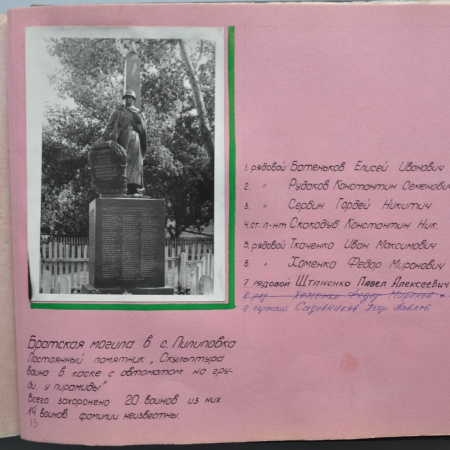 1. рядовой Батеньков Елисей Иванович
2. " Рудаков Константин Семенович
3. " Сербин Гордей Никитич
4. ст. л-нт. Скакодуб Константин Ник.
5. рядовой Ткаченко Иван Максимович
6. " Хоменко Федор Миронович
7 рядовой Штаненко Павел Алексеевич
8. ряд. Хоменко Федор
9 Садовников
Братская могила в с. Пилиповка
Постоянный памятник „Скульптура
воина в каске с автоматом на гру-
ди, у пирамиды"
Всего захоронено 20 воинов из них
14 воинов фамилии неизвестны.
13